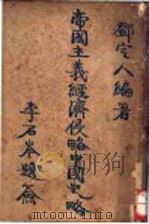 鄧定人編著
帝國主義經濟侵略中國史略
李石岑題簽